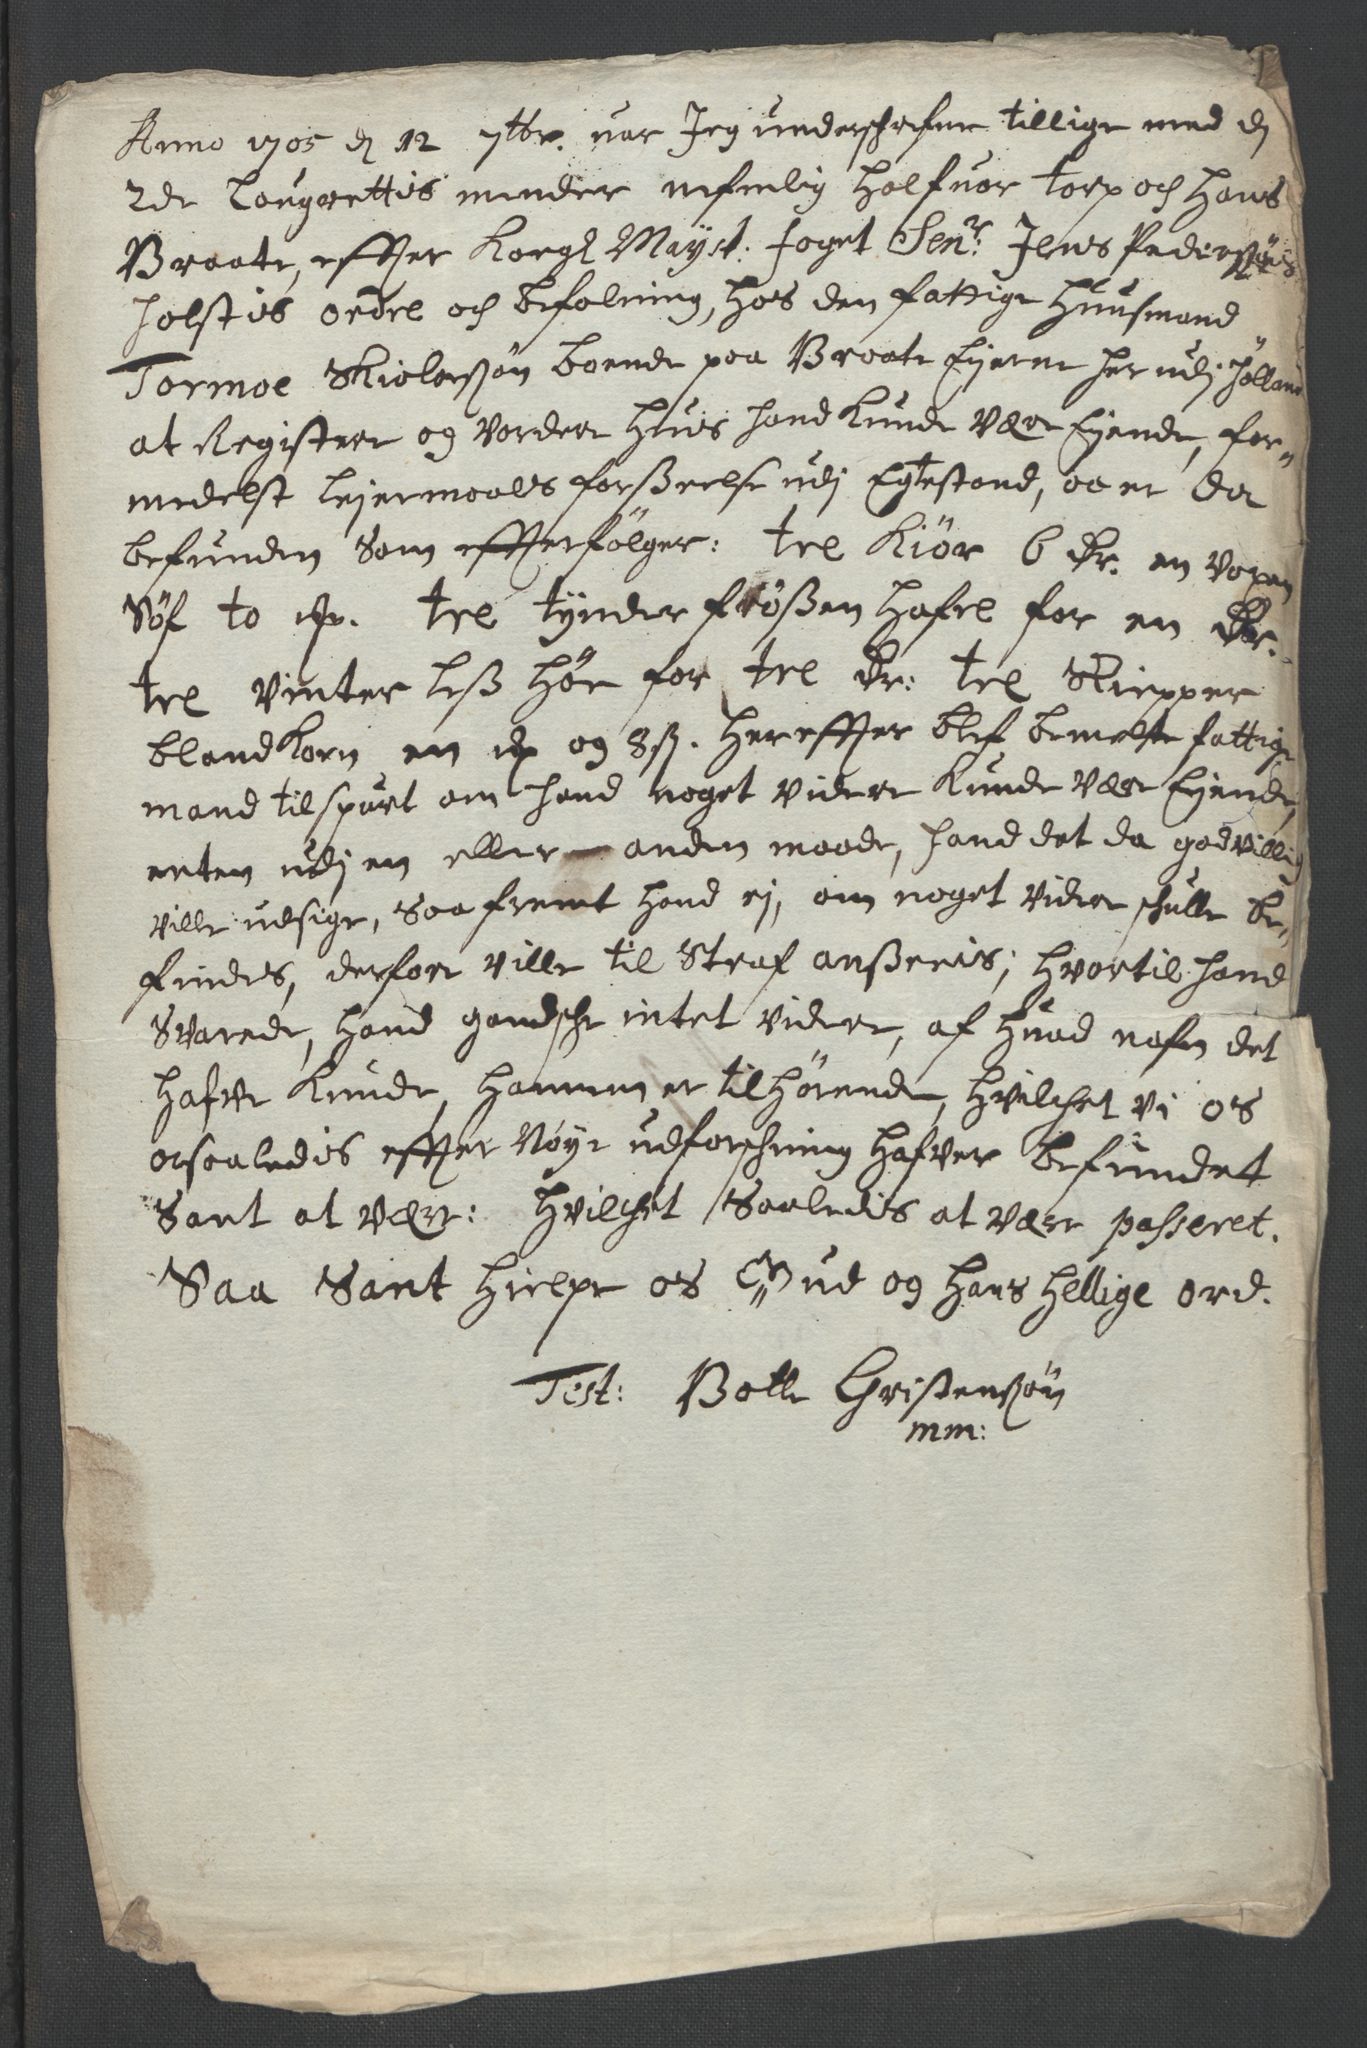 Anno 1705 d 12 7tbr. var Jeg underschrefne tillige med d
2de Laugrettis mender nefnlig Halfuor torp och Hans
Braate, effter Kongl Mayst. foget Senr. Jens Pedersøns
Holstis ordre och befalning, hos den fattige Huusmand
Tormoe Skiolersøn boende paa Braate Eyerne her udj Hölland
at Registrere og vordere Huis hand kunde være Eyende, for=
medelst Leyermaals forßeelse udj Egtestand, og er da
befunden Som effterfølger: tre Kiør 6 dr. en voxen
Søf to dr. tre tynder frößen Hafre for en dr.
tre vinter leß Höe for tre dr: tre Skiepper
blandkorn en dr og 8 ß. Her effter blef bemelte fattige
mand tilspurt om hand noget videre kunde være Eyende,
enten udj en eller anden maade, hand det da godvillig
ville udsige, Saafremt hand ej, om noget videre schulle be=
findes, derfore ville til Straf anßeeis; hvortil hand
Svarede, hand gandsche intet videre, af Huad nafn det
hafve kunde, hannem er tilhørende, hvilchet vi os
ogsaaledis effter nøye udforschning hafver befundet
Sant at være: hvilchet Saaledis at være passeret.
Saa Sant hielpe os Gud og Hans Hellige ord.
Test: Bolle Christensøn
mm: